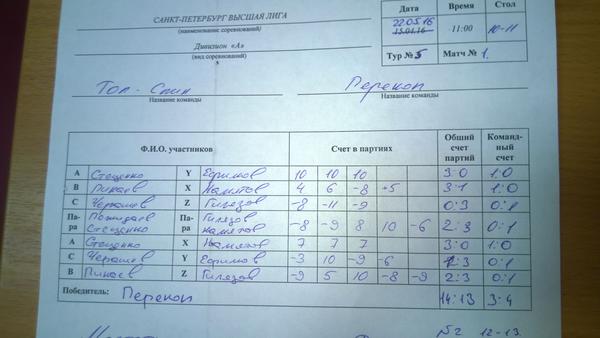 САНКТ-ПЕТЕРБУРГ ВЫСШАЯ ЛИГА
(наименование соревнований)
Дивизион «А»
(вид соревнований)
Дата Время Стол
22.05.16
15.04.16 11:00 10-11
Тур № 5 Матч № 1.
Топ-Спин Перекоп
Название команды Название команды
Ф.И.О. участников Счет в партиях Общий счет партий Команд-ный счет
А Стещенко Y Ефимов 10 10 10 3:0 1:0
В Пинаев X Наметов 4 6 -8 +5 3:1 1:0
С Черкашев Z Гилязов -8 -11 -9 0:3 0:1
Па-ра Стещенко Па-ра Гилязов Наметов -8 -9 8 10 -6 2:3 0:1
А Стещенко X Наметов 7 7 7 3:0 1:0
С Y Ефимов -3 10 -9 -6 1:3 0:1
В Пинаев Z Гилязов -9 5 10 -8 -9 2:3 0:1
Победитель: Перекоп 14:13 3:4
№2 12-13